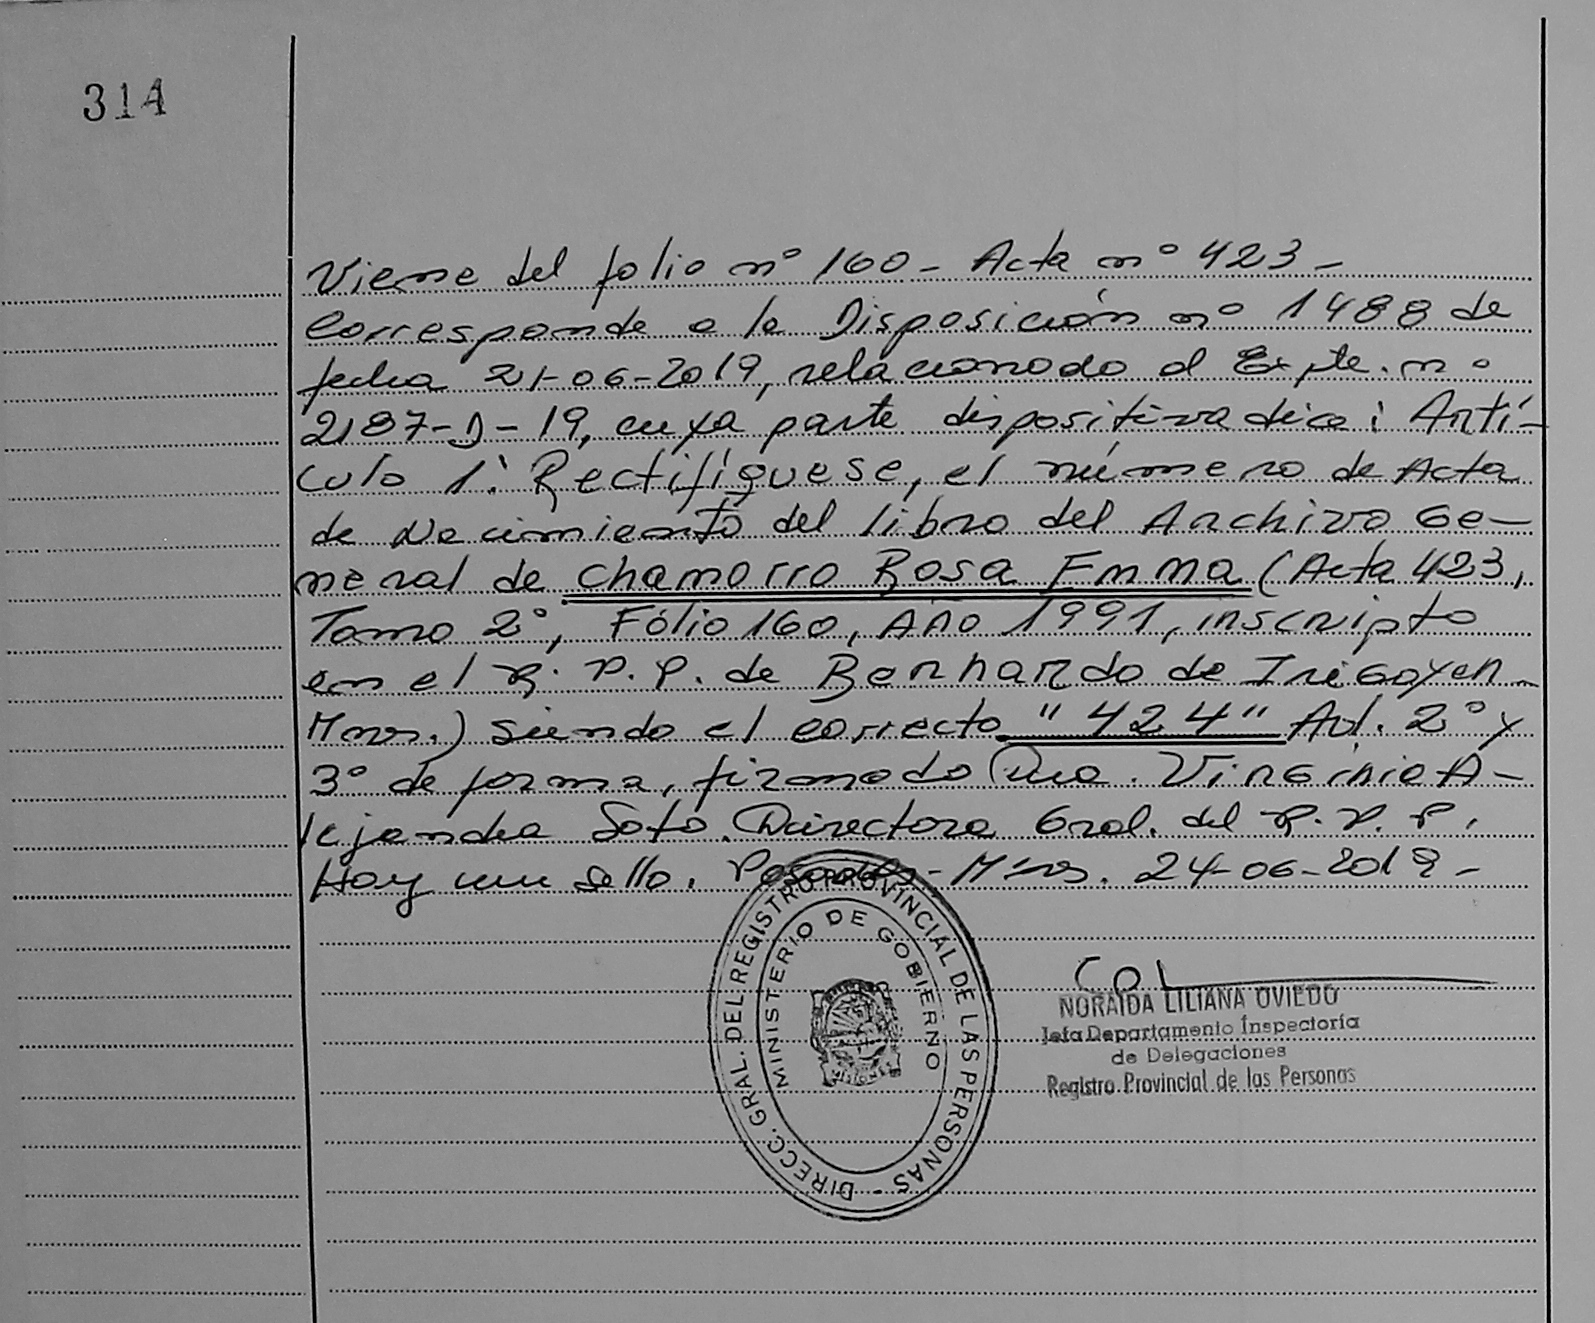 314
Viene del folio nº 160 - Acta nº 423 -
Corresponde a la Disposición nº 1488 de
fecha 21-06-2019, relacionado al Expte. nº
2187-D-19, cuya parte dispositiva dice: Artí-
culo 1º: Rectifíquese, el número de Acta
de Nacimiento del libro del Archivo Ge-
neral de Chamorro Rosa Emma (Acta 423,
Tomo 2º, Fólio 160, Año 1991, inscripto
en el R. P. P. de Bernardo de Irigoyen
Mnes.) siendo el correcto "424" Art. 2º y
3º de forma, firmado Dra. Virginia A-
lejandra Soto. Directora Gral. del R. P. P.
Hay un sello. Posadas - Mnes. 24-06-2019 -
DIRECC. GRAL. DEL REGISTRO PROVINCIAL DE LAS PERSONAS -
MINISTERIO DE GOBIERNO
MISIONES
NORAIDA LILIANA OVIEDO
Jefa Departamento Inspectoría
de Delegaciones
Registro Provincial de las Personas